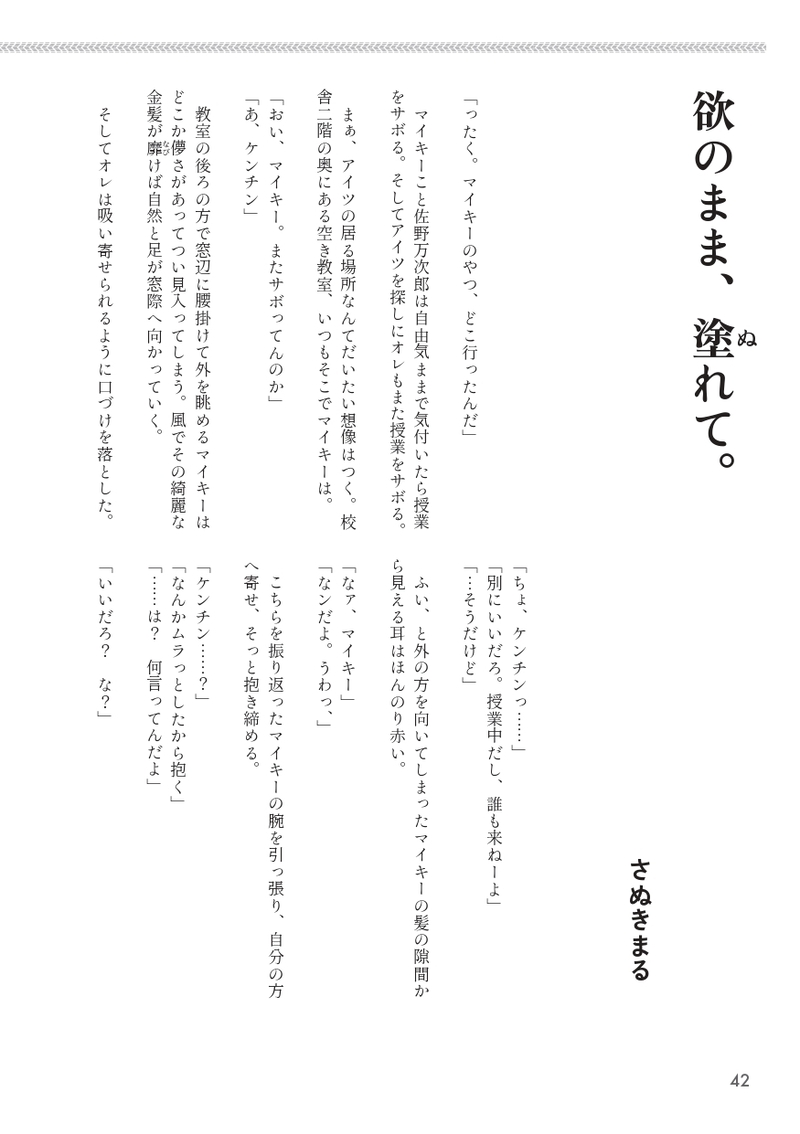 欲のまま、塗れて。
ぬ
さぬきまる
「ったく。マイキーのやつ、どこ行ったんだ」
マイキーこと佐野万次郎は自由気ままで気付いたら授業
をサボる。そしてアイツを探しにオレもまた授業をサボる。
まぁ、アイツの居る場所なんてだいたい想像はつく。校
舎二階の奥にある空き教室、いつもそこでマイキーは。
「おい、マイキー。またサボってんのか」
「あ、ケンチン」
教室の後ろの方で窓辺に腰掛けて外を眺めるマイキーは
どこか儚さがあってつい見入ってしまう。風でその綺麗な
金髪が靡けば自然と足が窓際へ向かっていく。
なび
そしてオレは吸い寄せられるように口づけを落とした。
「ちょ、ケンチンっ……」
「別にいいだろ。授業中だし、誰も来ねーよ」
「…そうだけど」
ふい、と外の方を向いてしまったマイキーの髪の隙間か
ら見える耳はほんのり赤い。
「なァ、マイキー」
「なンだよ。うわっ、」
こちらを振り返ったマイキーの腕を引っ張り、自分の方
へ寄せ、そっと抱き締める。
「ケンチン……？」
「なんかムラっとしたから抱く」
「……は？　何言ってんだよ」
「いいだろ？　な？」
42